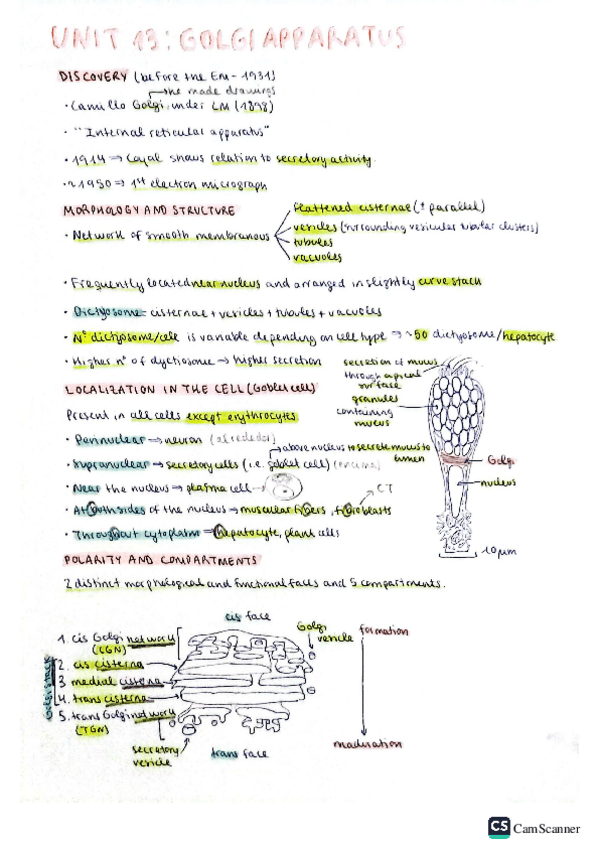 UNIT 13: GOLGI APPARATUS
DISCOVERY (before the EM - 1931)
he made drawings
· Camillo Golgi, under LM (1898)
· "Internal reticular apparatus"
· 1914 ⇒ Cajal shows relation to secretory activity
· ~1950 ⇒ 1st electron micrograph
MORPHOLOGY AND STRUCTURE
· Network of smooth membranous
flattened cisternae (± parallel)
vesicles (surrounding vesicular tubular clusters)
tubules
vacuoles
· Frequently located near nucleus and arranged in slightly curve stack
· Dictyosome = cisternae + vesicles + tubules + vacuoles
· Nº dictyosome/cell is variable depending on cell type ⇒ ~50 dictyosome/hepatocyte
· Higher nº of dyctiosome → higher secretion
LOCALIZATION IN THE CELL (Goblet cell)
Present in all cells except erythrocytes
· Perinuclear → neuron (alrededor)
above nucleus to secrete mucus to lumen
· Supranuclear → secretory cells (i.e. goblet cell) (encima)
· Near the nucleus → plasma cell
CT
· At both sides of the nucleus → muscular fibers, fibroblasts
· Throughout cytoplasm ⇒ hepatocyte, plant cells
secretion of mucus
through apical
surface
granules
containing
mucus
Golgi
nucleus
10 µm
POLARITY AND COMPARTMENTS
2 distinct morphological and functional faces and 5 compartments.
cis face
Golgi
vesicle
formation
1. cis Golgi network
(CGN)
2. cis cisterna
3 medial cisterna
4. trans cisterna
Golgi stack
5. trans Golgi network
(TGN)
secretory
vesicle
trans face
maduration
CS CamScanner